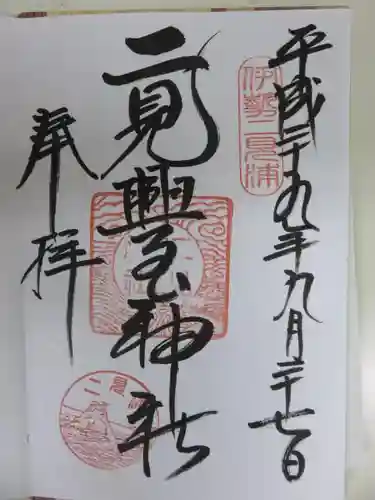 平成二十九年九月二十七日
伊勢二見浦
二見興玉神社
奉拝
二見浦